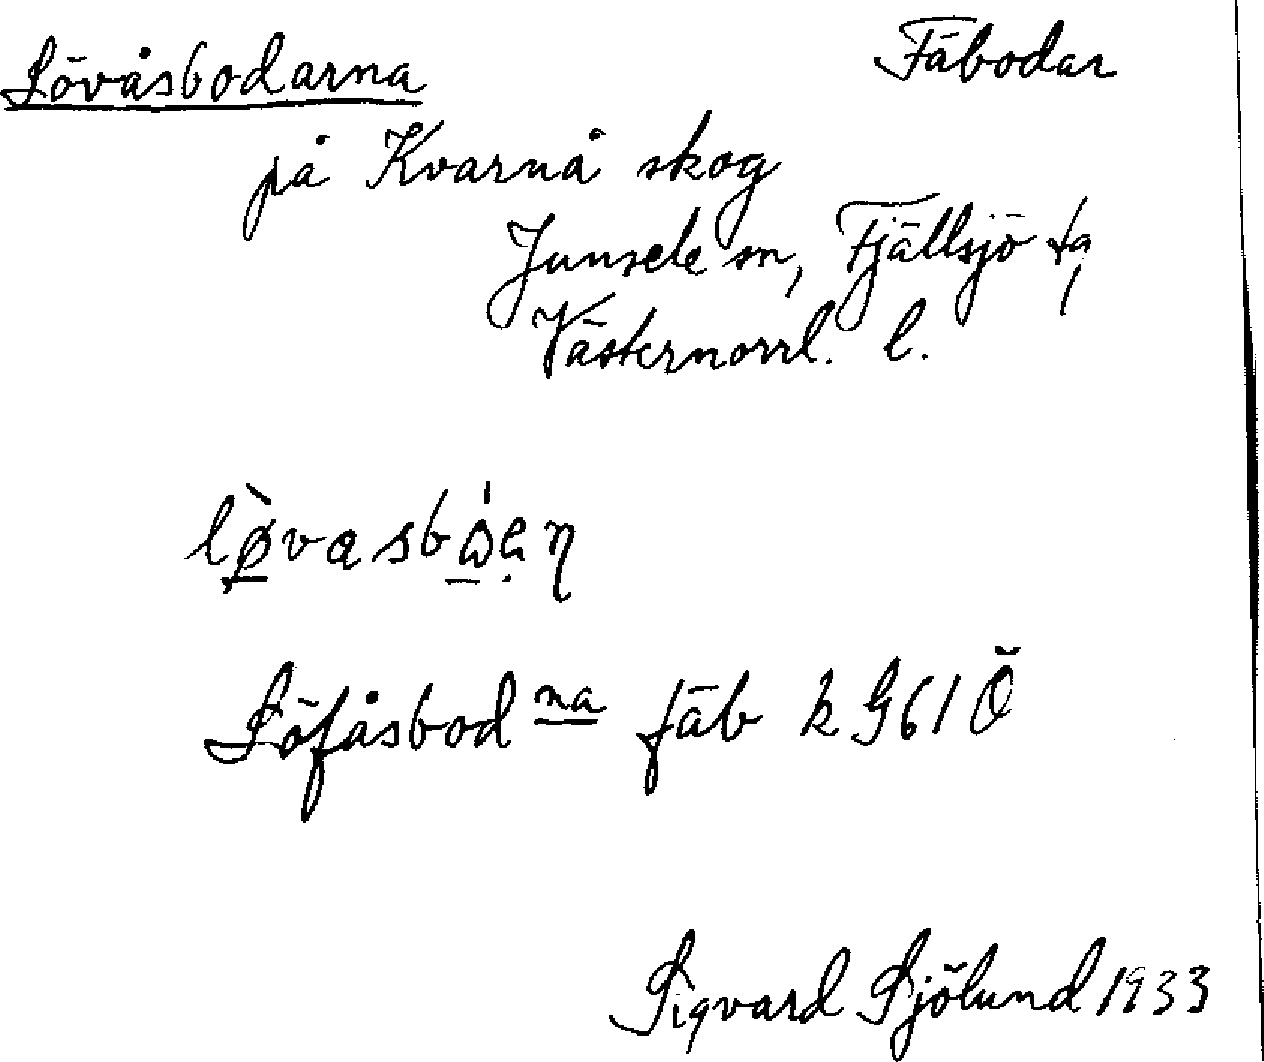 Lövåsbodarna Fäbodar
på Kvarnå skog
Junsele sn, Fjällsjö tg
Västernorrl. l.
Löfåsbod na fäb k G61 Ö
Sigvard Sjölund 1933